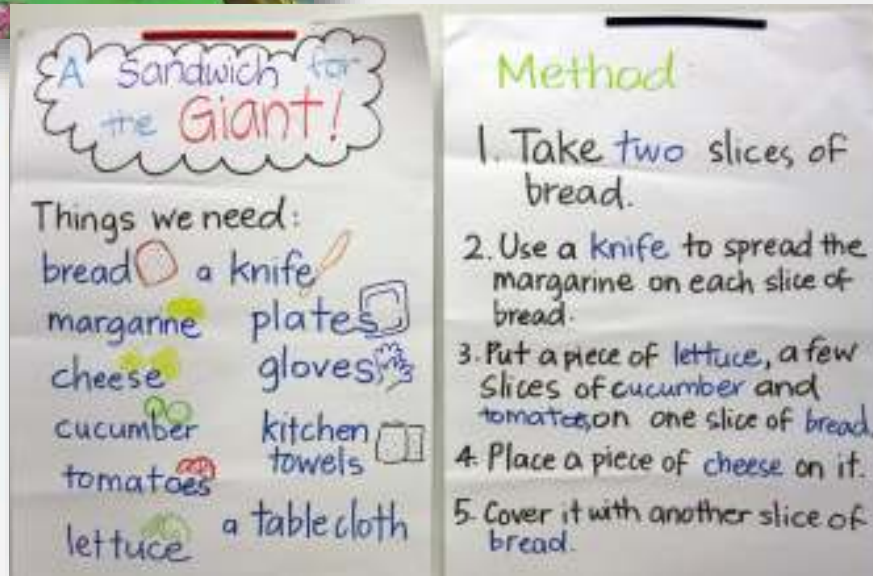 A Sandwich for
the Giant!
Things we need:
bread a knife
margarine plates
cheese gloves
cucumber kitchen
towels
tomatoes
lettuce a tablecloth
Method
1. Take two slices of
bread.
2. Use a knife to spread the
margarine on each slice of
bread.
3. Put a piece of lettuce, a few
slices of cucumber and
tomatoes, on one slice of bread.
4. Place a piece of cheese on it.
5. Cover it with another slice of
bread.